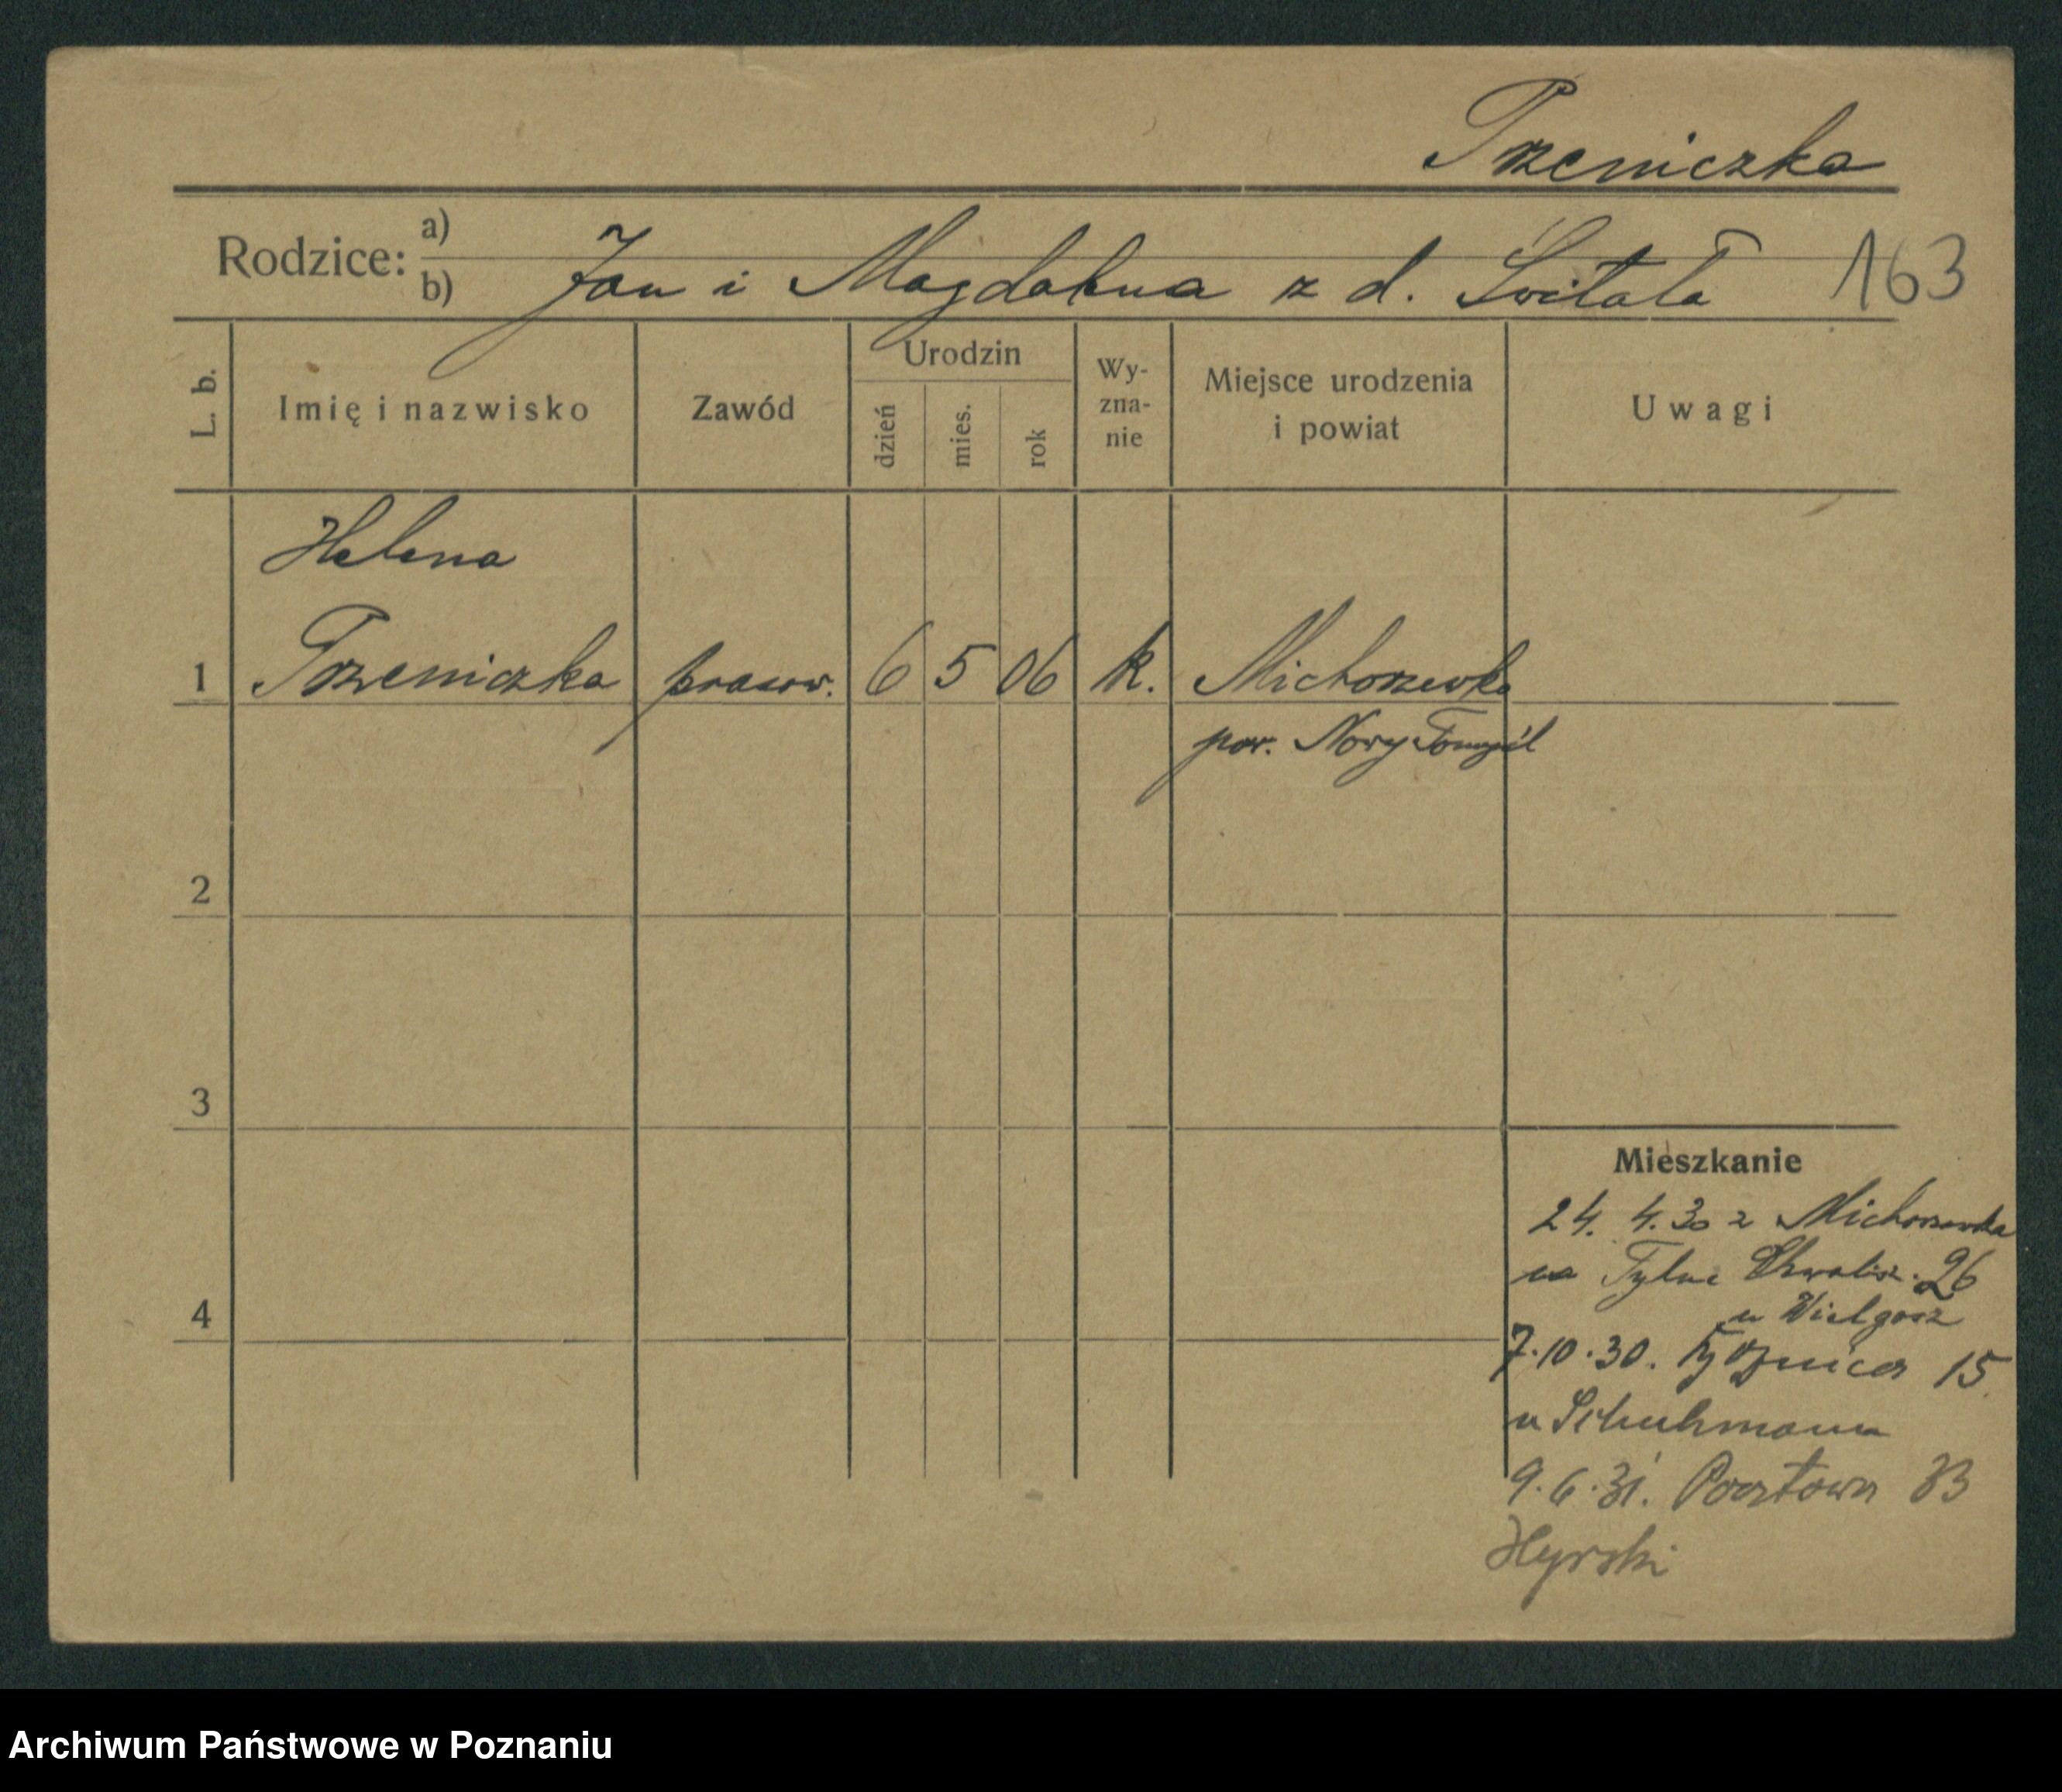 Przeniczka
Rodzice: a)
b) Jan i Magdalena z d. Świtała 163
L. b. Imię i nazwisko Zawód Urodzin dzień mies. rok Wy-zna-nie Miejsce urodzenia i powiat Uwagi
Helena
1 Przeniczka pracow. 6 5 06 k. Michorzewko
pow. Nowy Tomyśl
2
3
Mieszkanie
24. 4. 30 z Michorzewka
na Tylne Chwalisz. 26
4
u Wielgosz
7.10.30. 15
u Schuhmann
9.6.31. Pocztowa 33
Hyrski
Archiwum Państwowe w Poznaniu